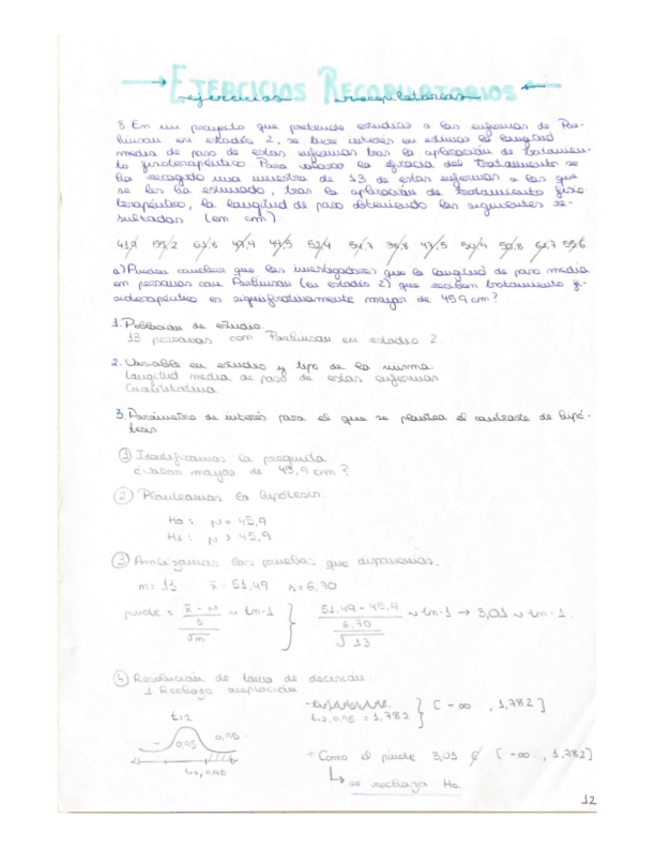 EJERCICIOS RECOPILATORIOS
ejercicios recopilatorios
8 En un proyecto que pretende estudiar a los enfermos de Par-
kinson en estadío 2, se tiene interés en estimar la longitud
media de paso de estos enfermos tras la aplicación de tratamien-
to fisioterapéutico Para valorar la eficacia del tratamiento se
ha recogido una muestra de 13 de estos enfermos a los que
se les ha estimado, tras la aplicación de tratamiento fisio-
terapéutico, la longitud de paso obteniendo los siguientes re-
sultados (en cm)
55,2 47,9 49,5 52,4 47,5 55,6
a) Pueden concluir que los investigadores que la longitud de paso media
en personas con Parkinson (en estadío 2) que reciben tratamiento fi-
sioterapéutico es significativamente mayor de 45,9 cm?
1. Población de estudio.
13 personas con Parkinson en estadio 2.
2. Variable en estudio y tipo de la misma
Longitud media de paso de estos enfermos
Cuantitativa
3. Parámetro de interés para el que se plantea el contraste de hipó-
tesis
① Identificamos la pregunta
mayor de 45,9 cm?
② Planteamos la hipótesis.
Ho: μ = 45,9
H1: μ > 45,9
③ Analizamos las pruebas que disponemos.
n = 13 x̄ = 51,49 s = 6,70
pivote = x̄ - μ / s / √n ~ tn-1 } 51,49 - 45,9 / 6,70 / √13 ~ tn-1 → 3,01 ~ tn-1.
④ Resolución de toma de decisión.
1 Rechazo aceptación
t12,0,95 = 1,782 } [-∞ , 1,782]
t12
0,95 0,95
t12,0,95
Como el pivote 3,01 ∉ [-∞ , 1,782]
↳ se rechaza Ho.
12